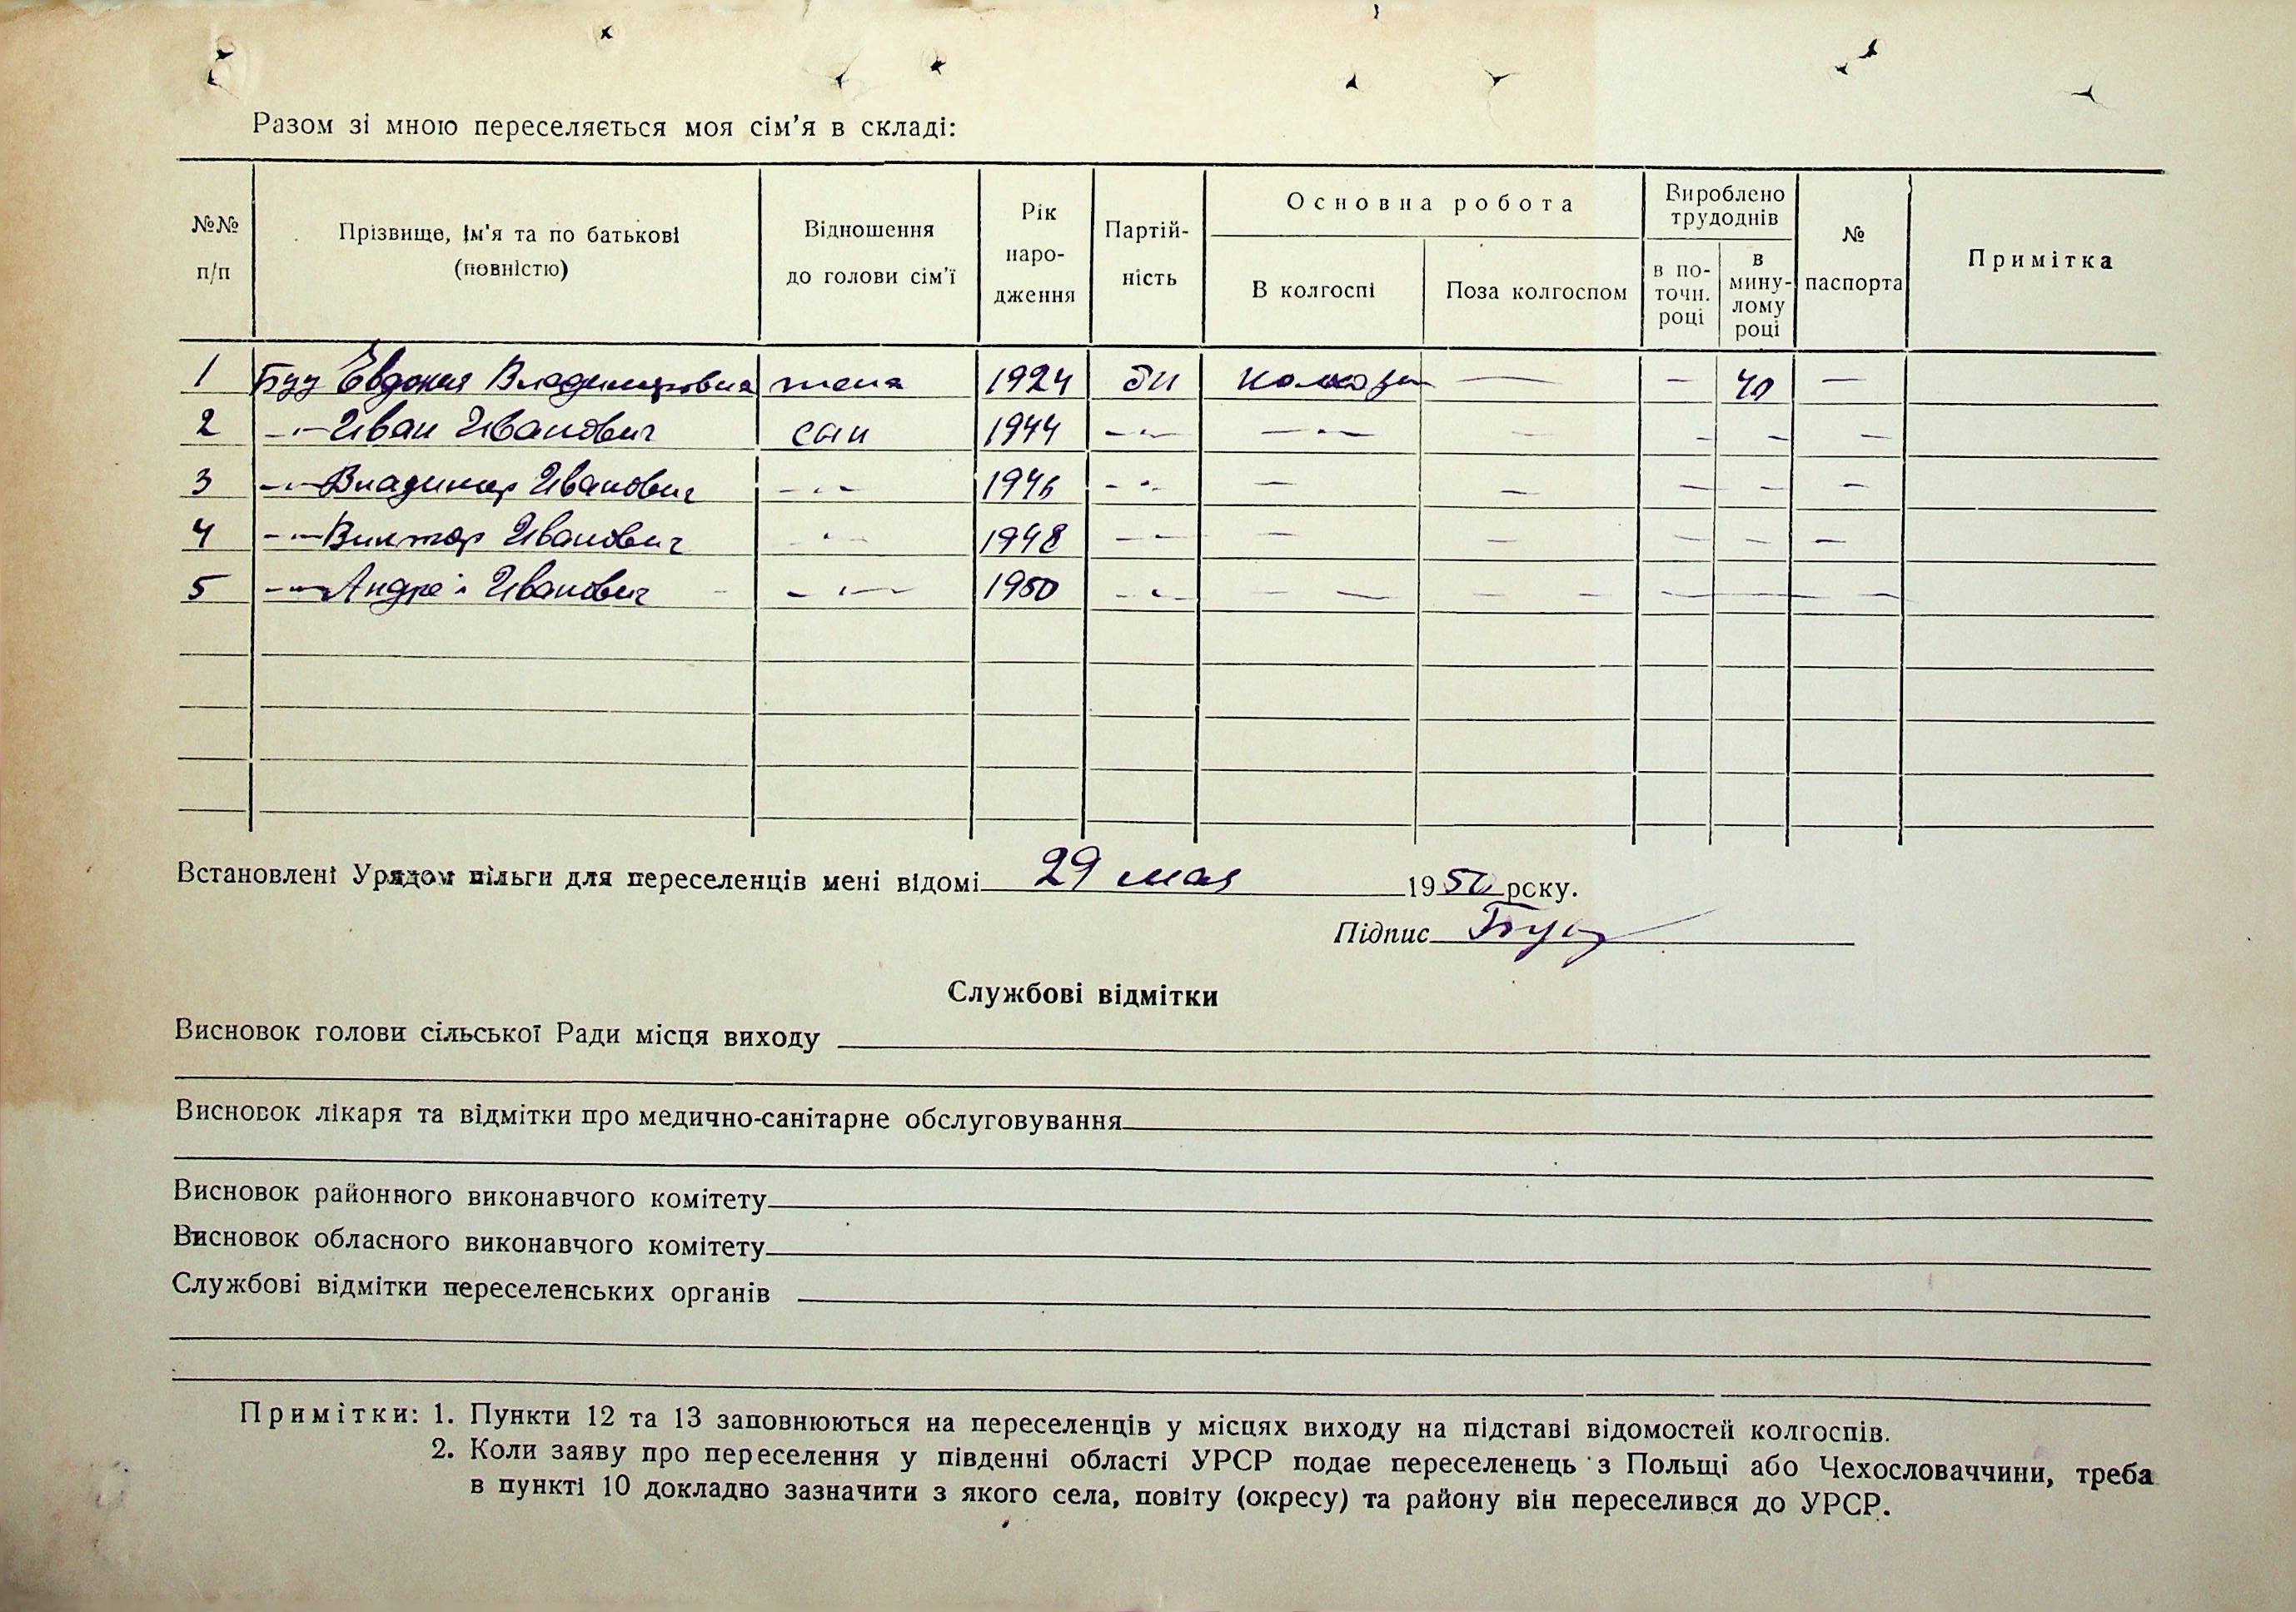 Разом зі мною переселяється моя сім'я в складі:
№№ п/п
Прізвище, ім'я та по батькові (повністю)
Відношення до голови сім'ї
Рік народження
Партійність
Основна робота
В колгоспі
Поза колгоспом
Вироблено трудоднів
в поточн. році
в минулому році
№ паспорта
Примітка
1 Буц Евдокия Владимировна жена 1924 бп — — 40 —
2 -"- Иван Иванович сын 1944 -"- -"- — — — —
3 -"- Владимир Иванович -"- 1946 -"- — — — — —
4 -"- Виктор Иванович -"- 1948 -"- — — — — —
5 -"- Андрей Иванович -"- 1950 -"- — — — — — — —
Встановлені Урядом пільги для переселенців мені відомі 29 мая 1950 року.
Підпис Буц
Службові відмітки
Висновок голови сільської Ради місця виходу
Висновок лікаря та відмітки про медично-санітарне обслуговування
Висновок районного виконавчого комітету
Висновок обласного виконавчого комітету
Службові відмітки переселенських органів
Примітки: 1. Пункти 12 та 13 заповнюються на переселенців у місцях виходу на підставі відомостей колгоспів.
2. Коли заяву про переселення у південні області УРСР подає переселенець з Польщі або Чехословаччини, треба
в пункті 10 докладно зазначити з якого села, повіту (окресу) та району він переселився до УРСР.